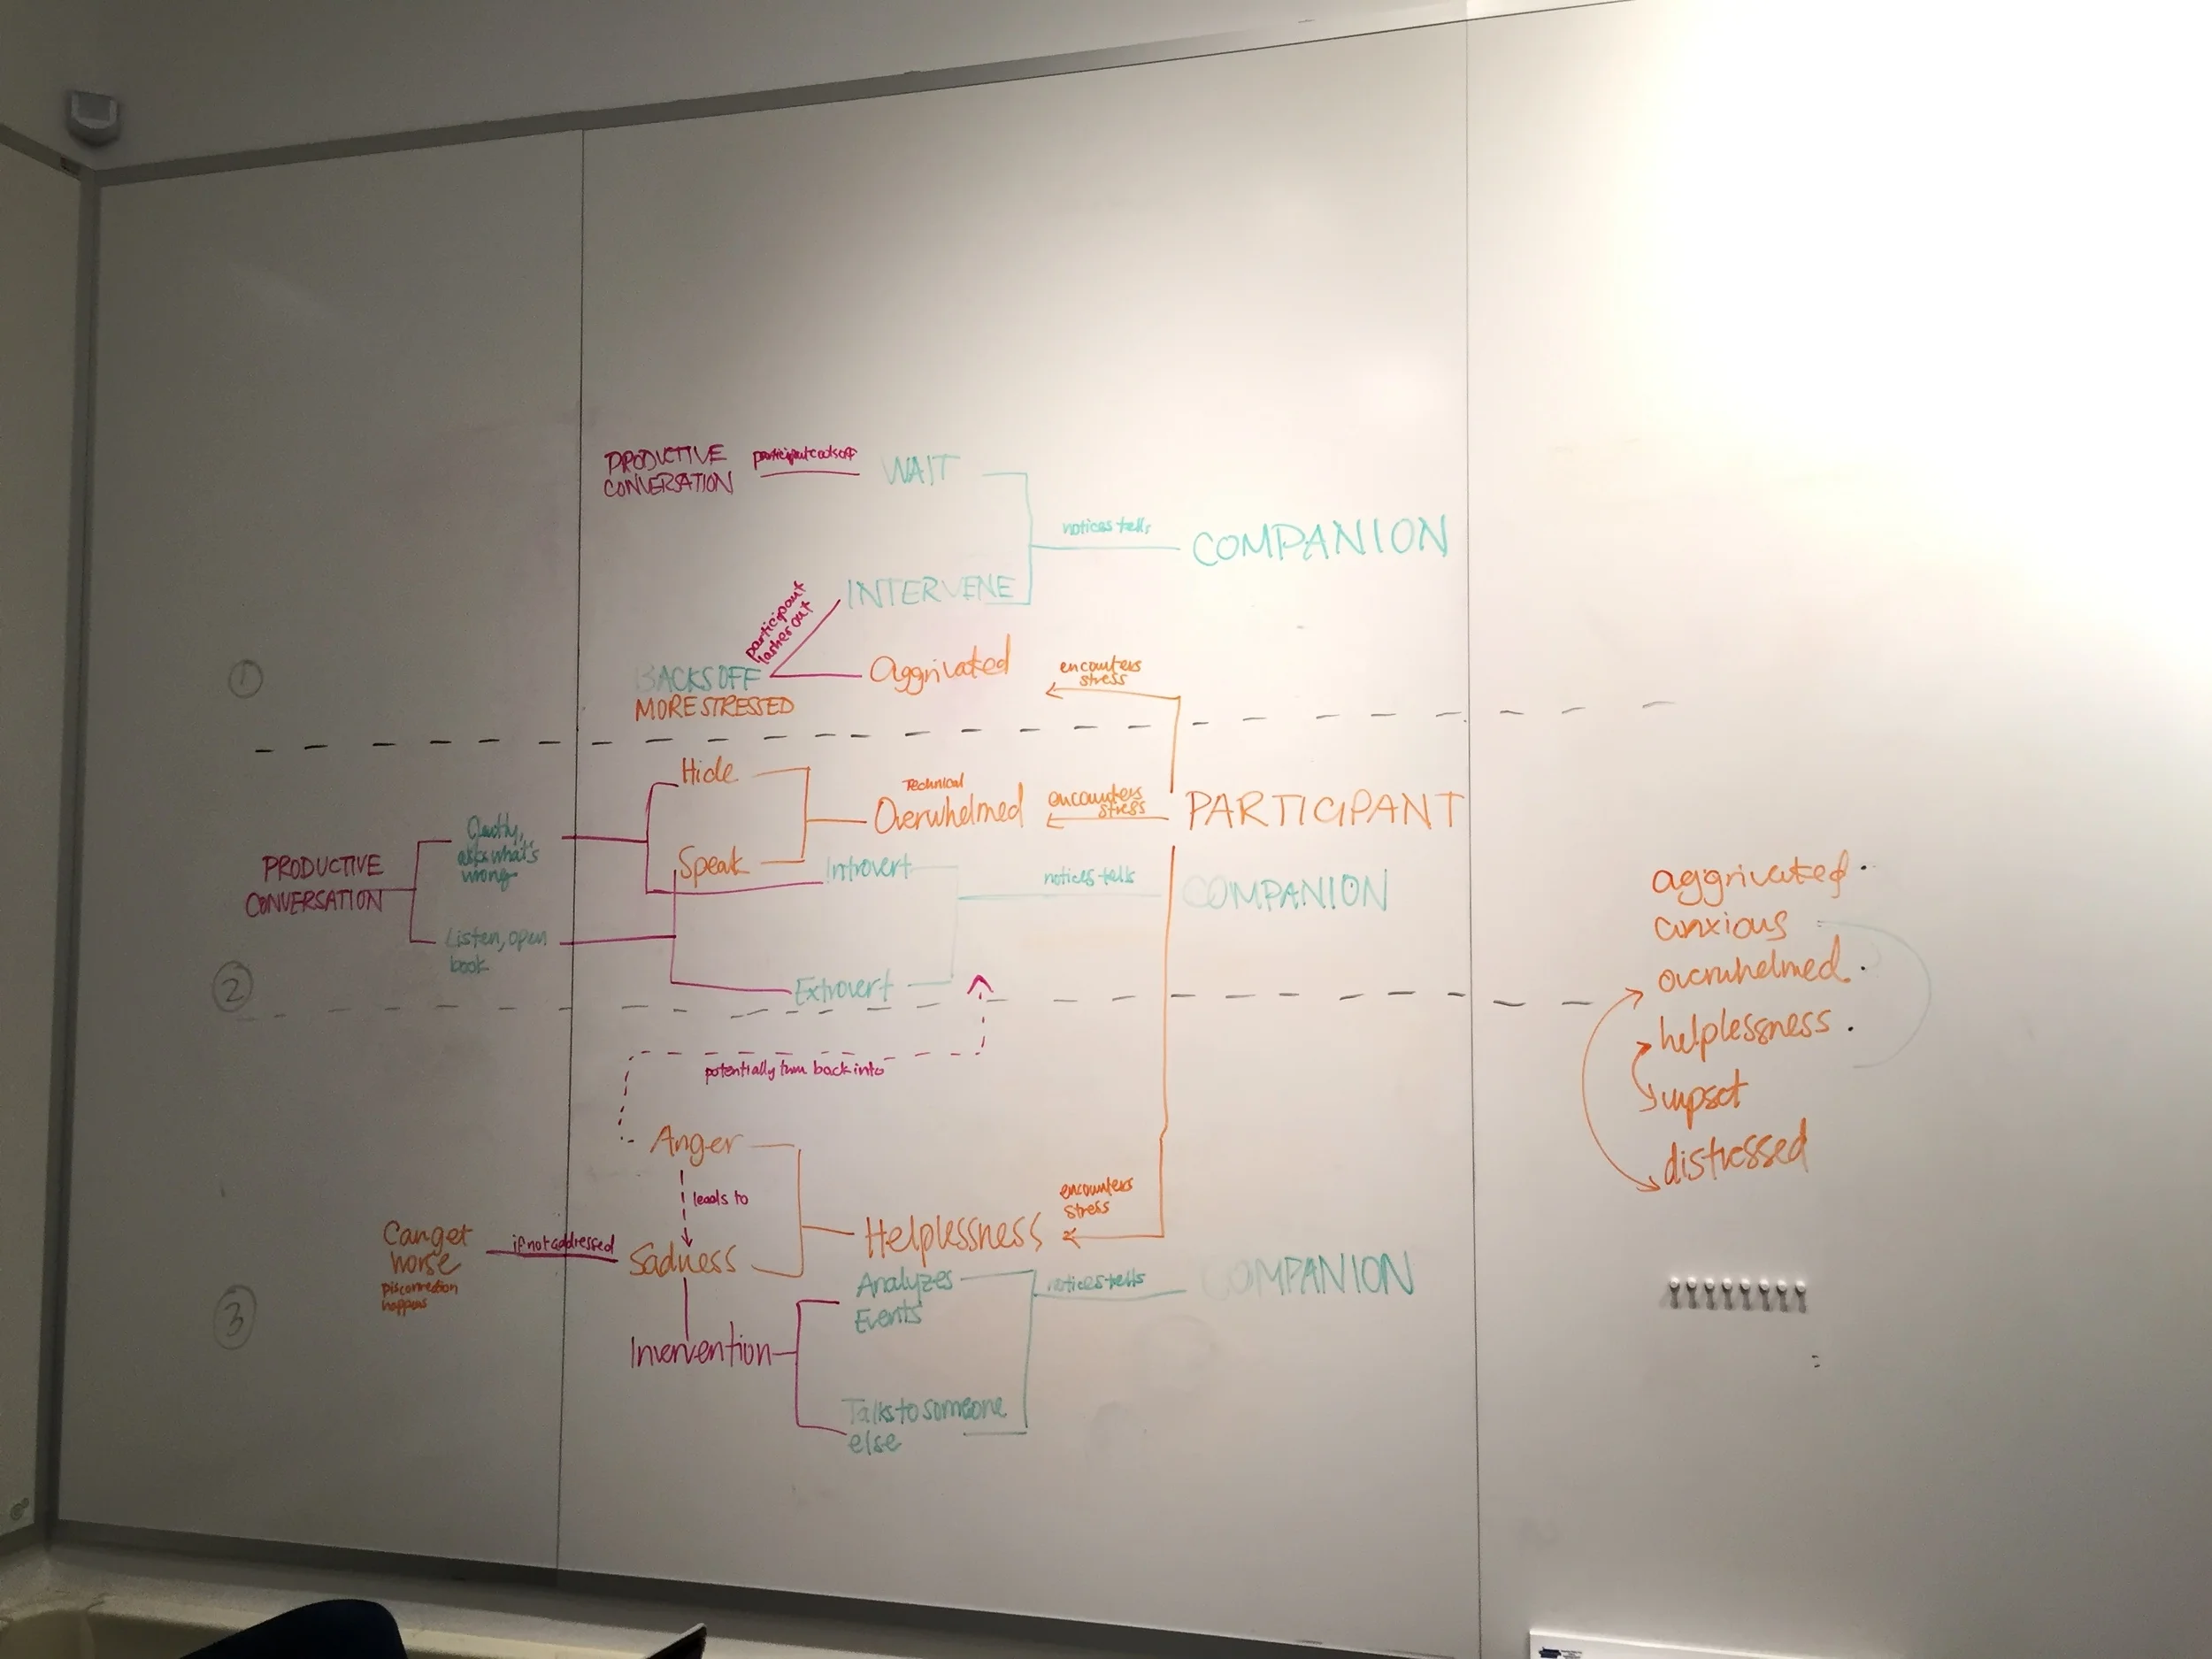 PRODUCTIVE
CONVERSATION
participant cools off
WAIT
notices tells
COMPANION
INTERVENE
participant
lashes out
BACKS OFF
MORE STRESSED
Aggrivated
encounters
stress
1
Hide
Technical
Overwhelmed
encounters
stress
PARTICIPANT
Quietly,
asks what's
wrong
Speak
PRODUCTIVE
CONVERSATION
Introvert
notices tells
COMPANION
Listen, open
book
Extrovert
2
potentially turn back into
Anger
leads to
encounters
stress
Helplessness
Can get
worse
Disconnection
happens
if not addressed
Sadness
Analyzes
Events
notices tells
COMPANION
3
Invervention
Talks to someone
else
aggrivated
anxious
overwhelmed
helplessness
upset
distressed